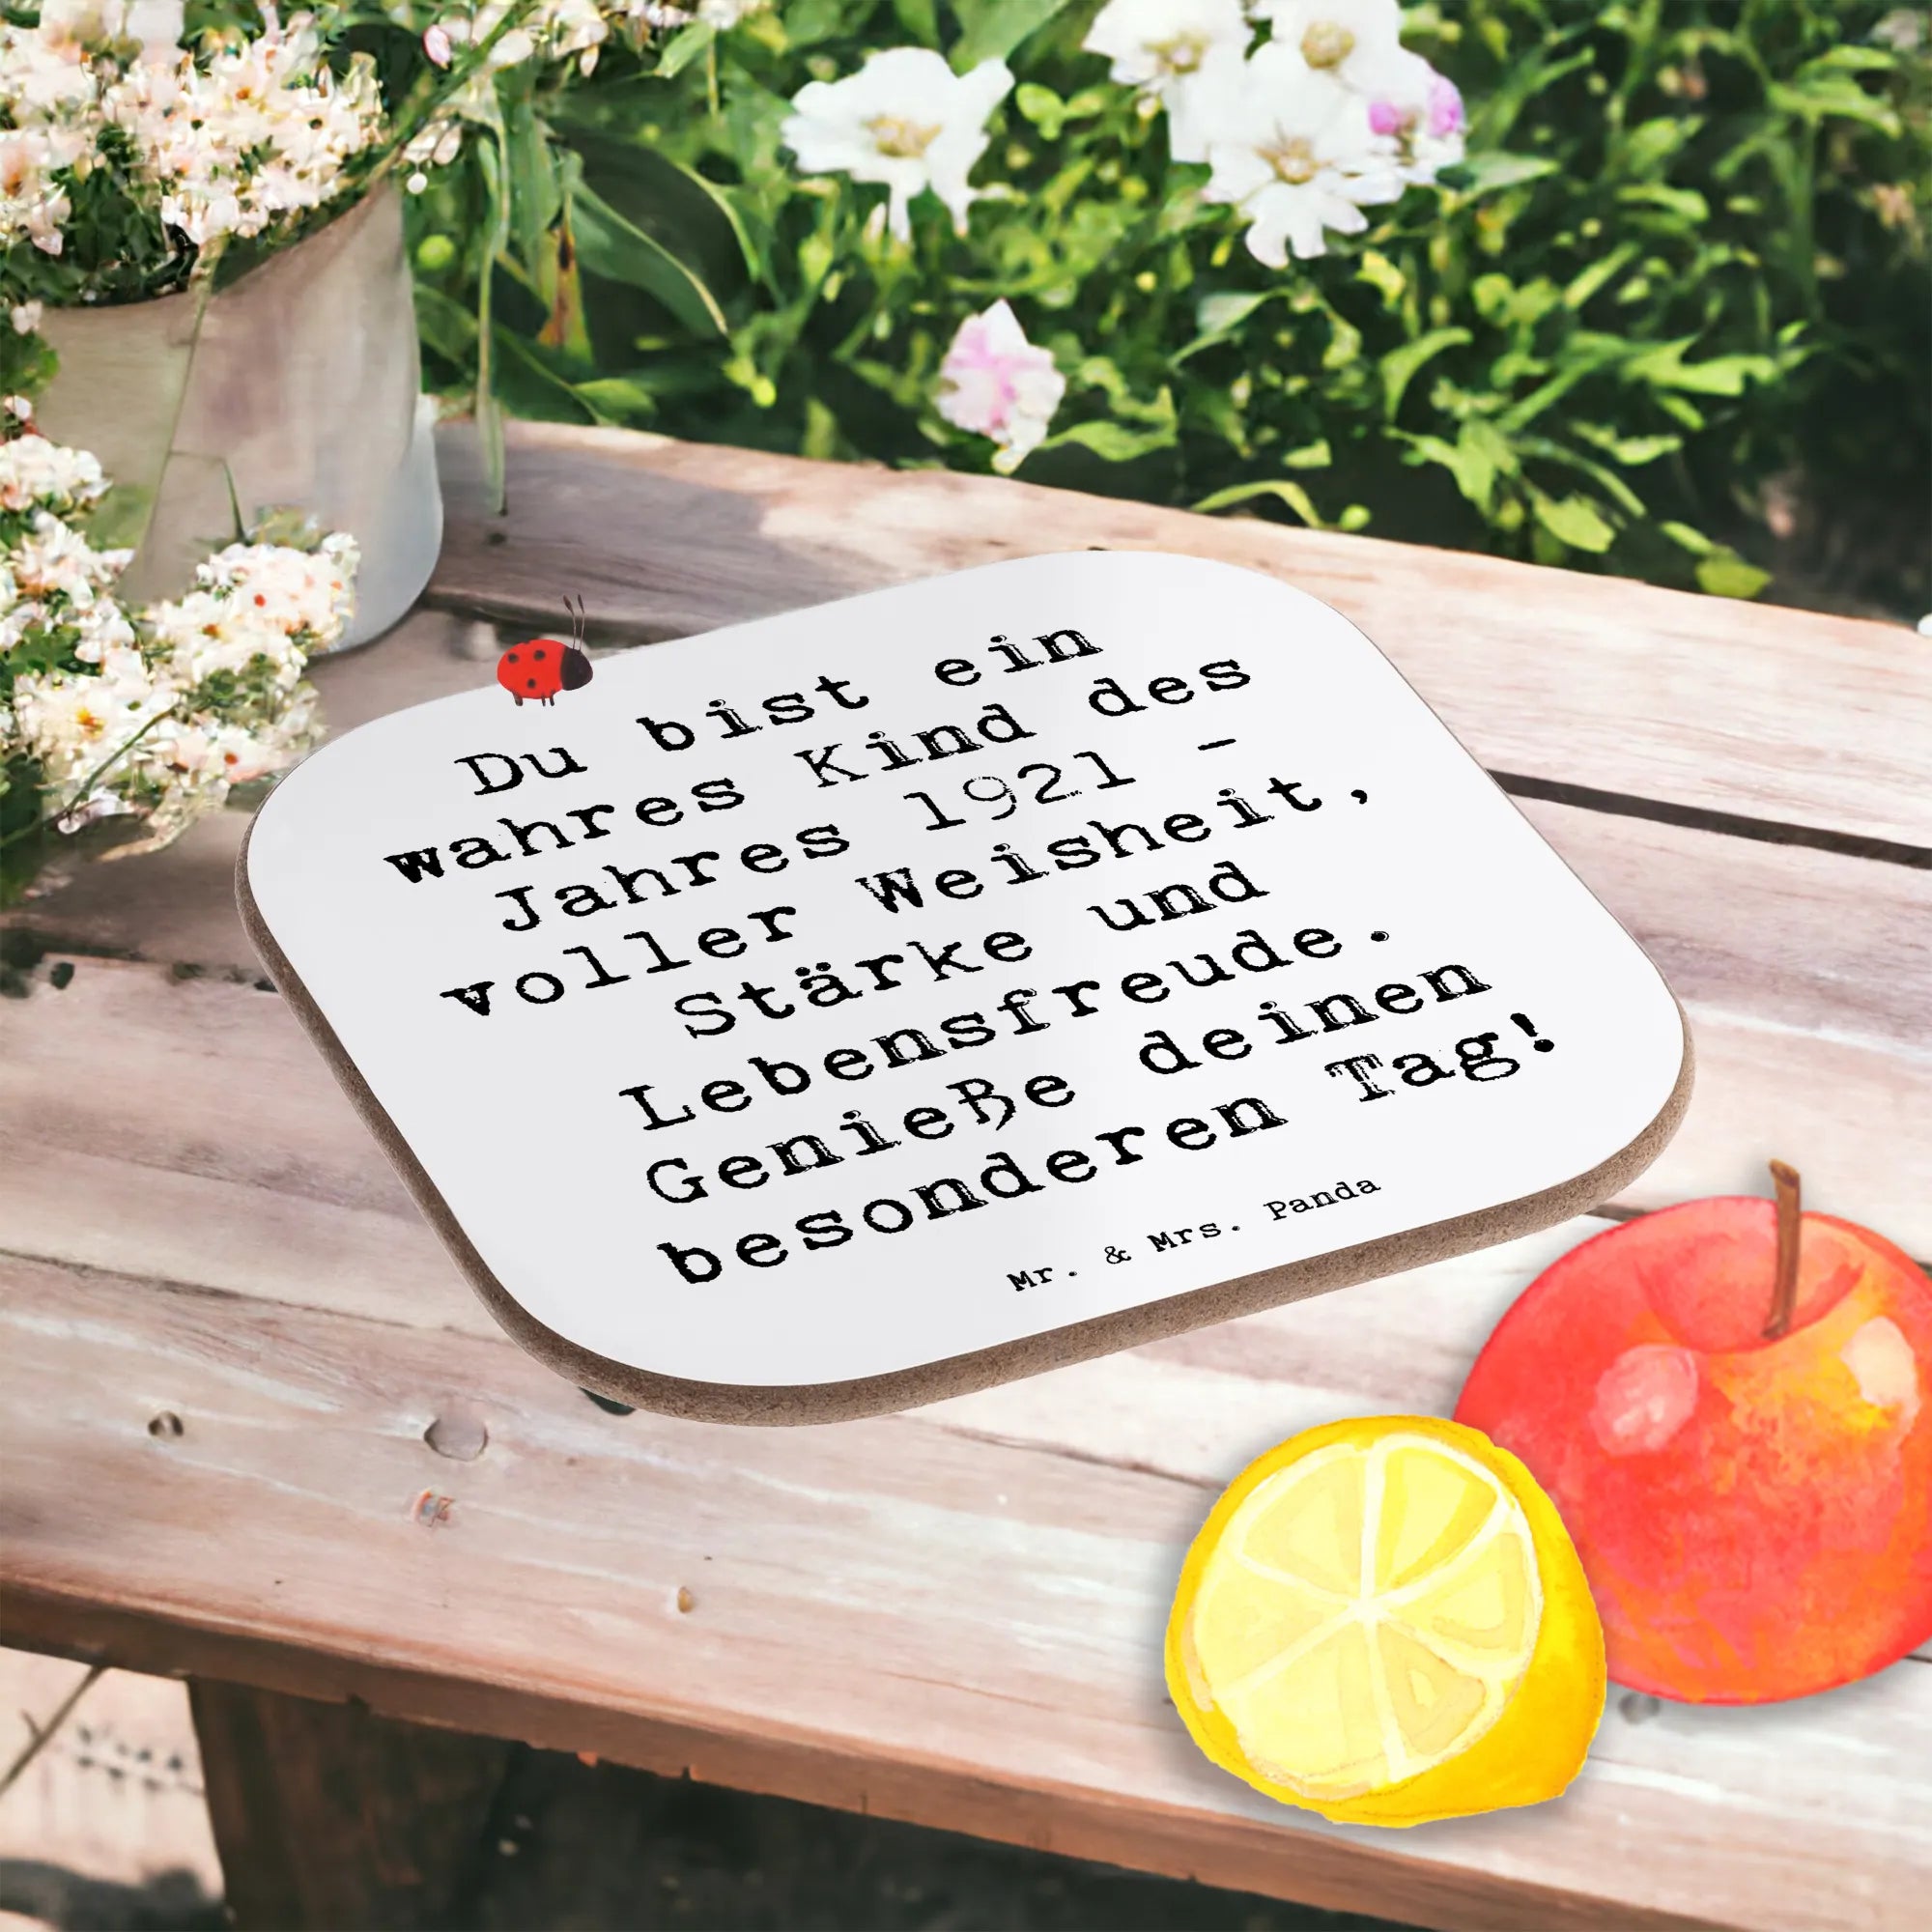 Du bist ein
wahres Kind des
Jahres 1921 -
voller Weisheit,
Stärke und
Lebensfreude.
Genieße deinen
besonderen Tag!
Mr. & Mrs. Panda